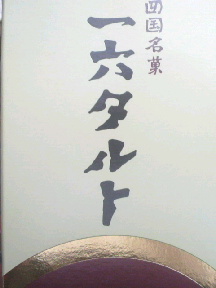 四国名菓
一六タルト